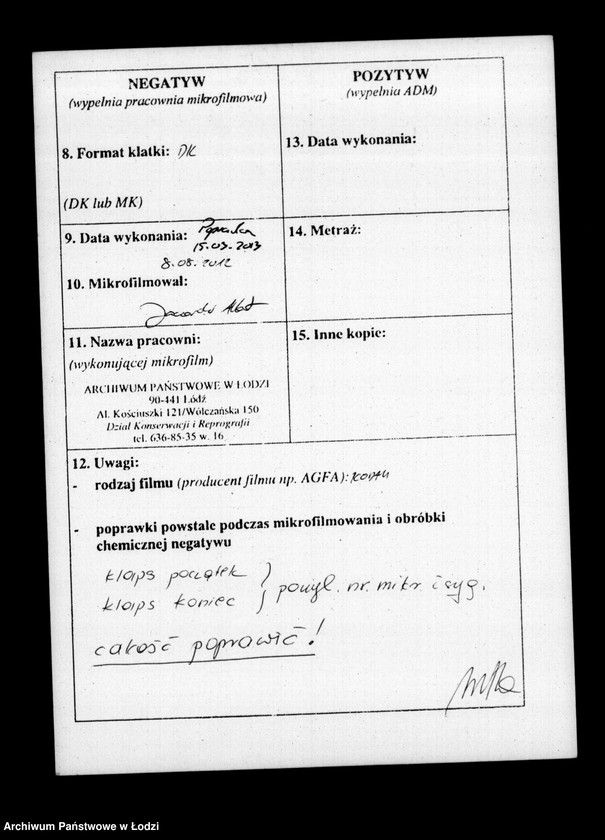 NEGATYW
(wypełnia pracownia mikrofilmowa)
8. Format klatki: DK
(DK lub MK)
9. Data wykonania: Poprawka
15.03.2013
8.08.2012
10. Mikrofilmował:
11. Nazwa pracowni:
(wykonującej mikrofilm)
ARCHIWUM PAŃSTWOWE W ŁODZI
90-441 Łódź
Al. Kościuszki 121/Wólczańska 150
Dział Konserwacji i Reprografii
tel. 636-85-35 w. 16
POZYTYW
(wypełnia ADM)
13. Data wykonania:
14. Metraż:
15. Inne kopie:
12. Uwagi:
- rodzaj filmu (producent filmu np. AGFA): KODAK
- poprawki powstałe podczas mikrofilmowania i obróbki
chemicznej negatywu
klaps początek
klaps koniec
} pomył. nr. mikr. i syg.
całość poprawić!
Archiwum Państwowe w Łodzi